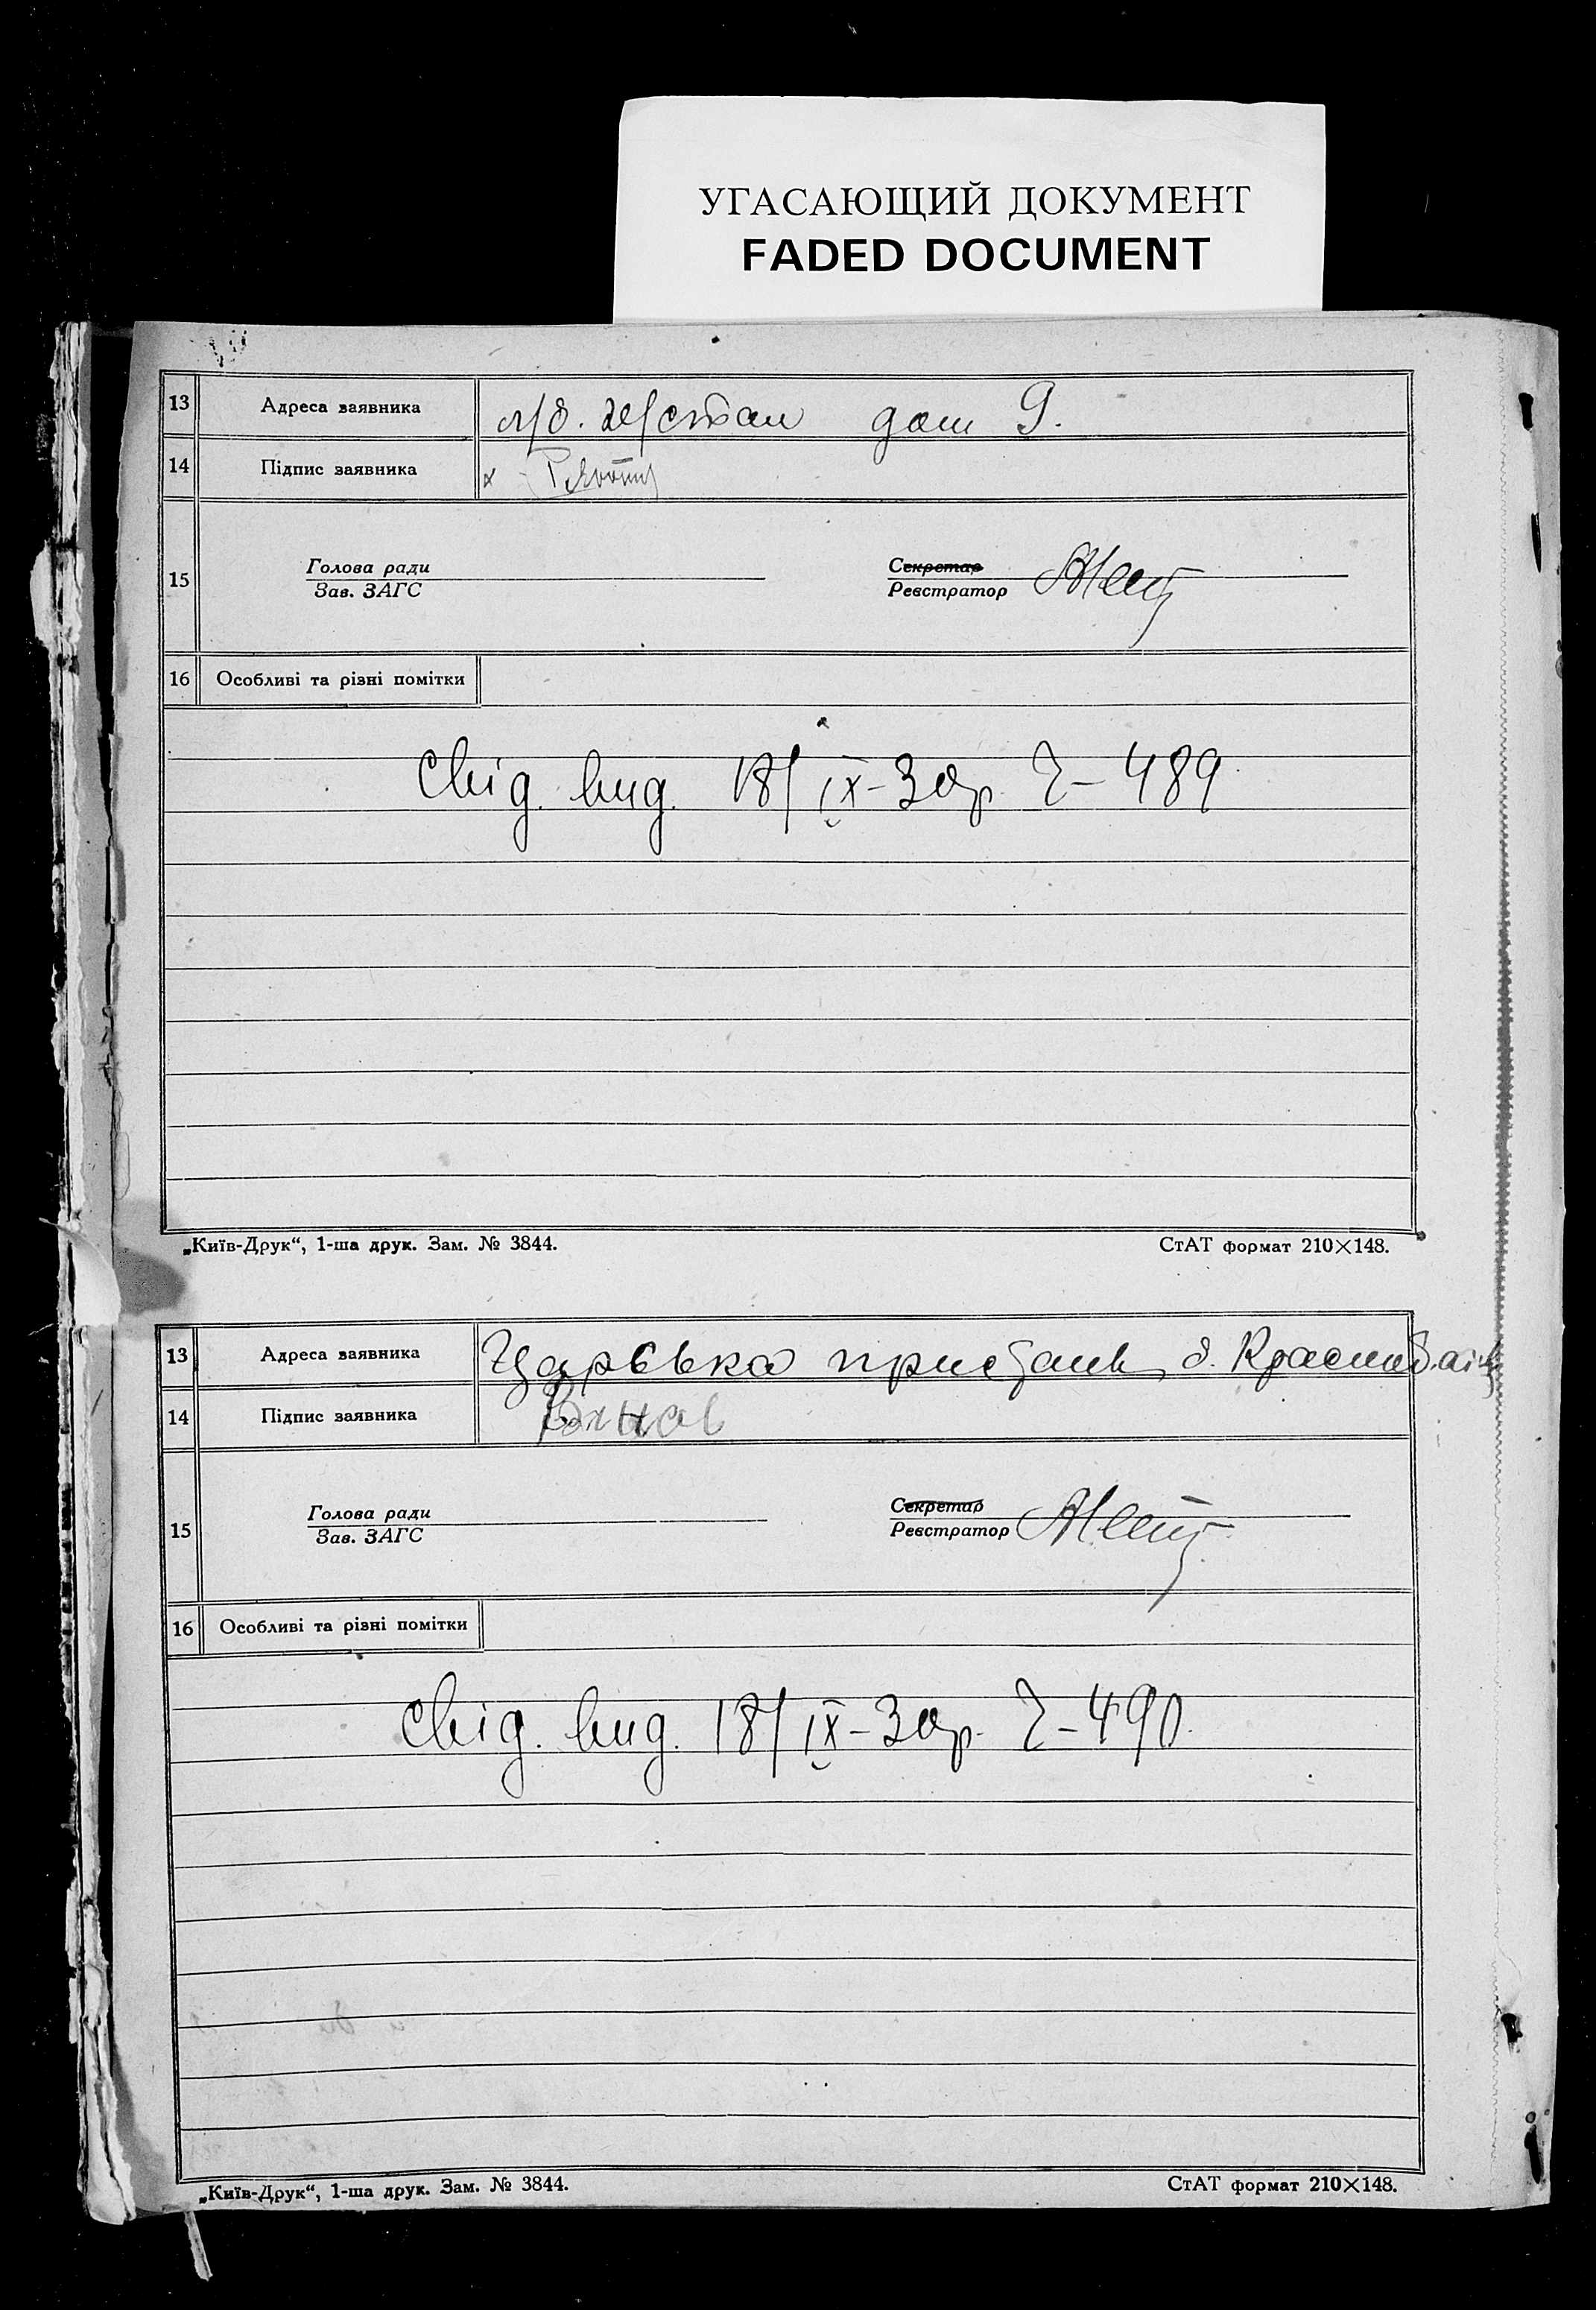 УГАСАЮЩИЙ ДОКУМЕНТ
FADED DOCUMENT
13 Адреса заявника дом 9.
14 Підпис заявника
15 Голова ради
Зав. ЗАГС
Секретар
Реєстратор
16 Особливі та різні помітки
Свід. вид. 18/IX-30р. Ч-489
„Київ-Друк“, 1-ша друк. Зам. № 3844. СтАТ формат 210×148.
13 Адреса заявника Царська пристань
14 Підпис заявника
15 Голова ради
Зав. ЗАГС
Секретар
Реєстратор
16 Особливі та різні помітки
Свід. вид. 18/IX-30р. Ч-490.
„Київ-Друк“, 1-ша друк. Зам. № 3844. СтАТ формат 210×148.